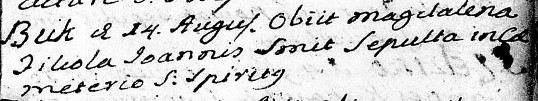 Buh d 24. Augus. Obiit magdalena
Filiola Ioannis Smit Sepulta in Cæ
meterio S. Spiritus